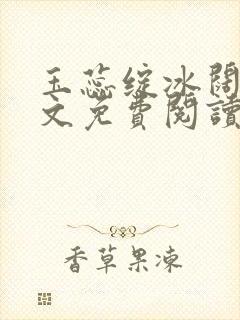 玉蕊绽冰閣
文免費閱讀
香草果凍